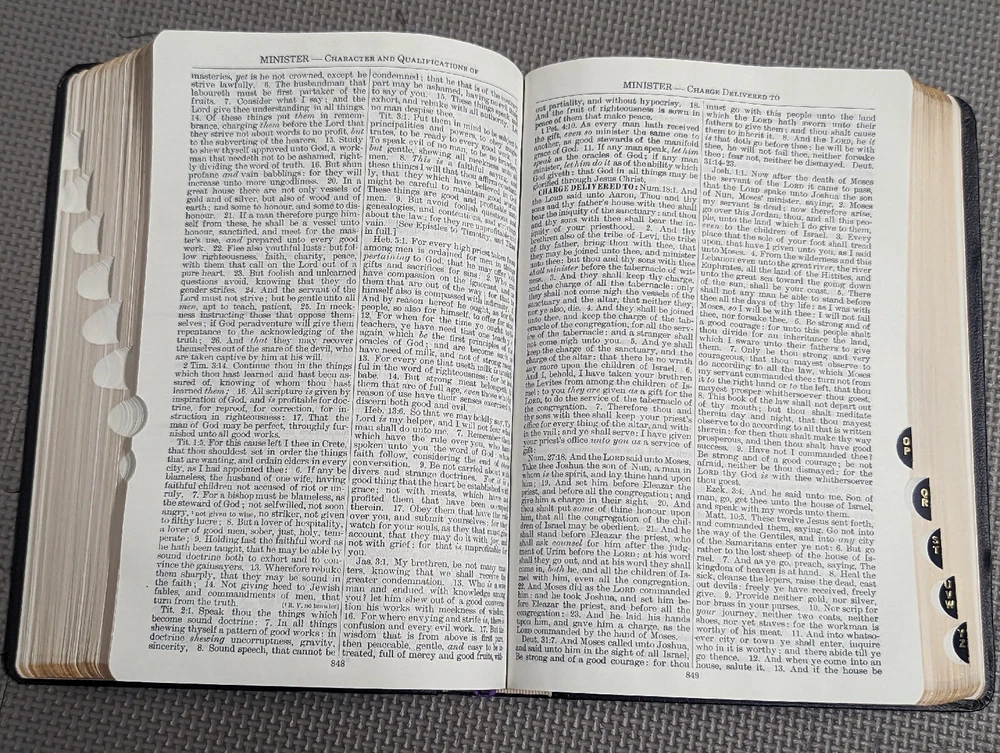 MINISTER — CHARACTER AND QUALIFICATIONS OF
masteries, yet is he not crowned, except he
strive lawfully. 6. The husbandman that
laboureth must be first partaker of the
fruits. 7. Consider what I say; and the
Lord give thee understanding in all things.
14. Of these things put them in remem-
brance, charging them before the Lord that
they strive not about words to no profit, but
to the subverting of the hearers. 15. Study
to shew thyself approved unto God, a work-
man that needeth not to be ashamed, right-
ly dividing the word of truth. 16. But shun
profane and vain babblings: for they will
increase unto more ungodliness. 20. In a
great house there are not only vessels of
gold and of silver, but also of wood and of
earth; and some to honour, and some to dis-
honour. 21. If a man therefore purge him-
self from these, he shall be a vessel unto
honour, sanctified, and meet for the mas-
ter's use, and prepared unto every good
work. 22. Flee also youthful lusts: but fol-
low righteousness, faith, charity, peace,
with them that call on the Lord out of a
pure heart. 23. But foolish and unlearned
questions avoid, knowing that they do
gender strifes. 24. And the servant of the
Lord must not strive; but be gentle unto all
men, apt to teach, patient, 25. In meek-
ness instructing those that oppose them-
selves; if God peradventure will give them
repentance to the acknowledging of the
truth; 26. And that they may recover
themselves out of the snare of the devil, who
are taken captive by him at his will.
2 Tim. 3:14. Continue thou in the things
which thou hast learned and hast been as-
sured of, knowing of whom thou hast
learned them; 16. All scripture is given by
inspiration of God, and is profitable for doc-
trine, for reproof, for correction, for in-
struction in righteousness: 17. That the
man of God may be perfect, throughly fur-
nished unto all good works.
Tit. 1:5. For this cause left I thee in Crete,
that thou shouldest set in order the things
that are wanting, and ordain elders in every
city, as I had appointed thee: 6. If any be
blameless, the husband of one wife, having
faithful children not accused of riot or un-
ruly. 7. For a bishop must be blameless, as
the steward of God; not selfwilled, not soon
angry, not given to wine, no striker, not given
to filthy lucre; 8. But a lover of hospitality,
a lover of good men, sober, just, holy, tem-
perate; 9. Holding fast the faithful word as
he hath been taught, that he may be able by
sound doctrine both to exhort and to con-
vince the gainsayers. 13. Wherefore rebuke
them sharply, that they may be sound in
the faith; 14. Not giving heed to Jewish
fables, and commandments of men, that
turn from the truth.
Tit. 2:1. Speak thou the things which
become sound doctrine: 7. In all things
shewing thyself a pattern of good works: in
doctrine shewing uncorruptness, gravity,
sincerity, 8. Sound speech, that cannot be
condemned; that he that is of the
part may be ashamed, having no
to say of you. 15. These things
exhort, and rebuke with all authority.
no man despise thee.
Tit. 3:1. Put them in mind to be
principalities and powers, to obey
trates, to be ready to every good
To speak evil of no man, to be no
but gentle, shewing all meekness
men. 8. This is a faithful saying
these things I will that thou affirm
ly, that they which have believed
might be careful to maintain
These things are good and profitable
men. 9. But avoid foolish questions
genealogies, and contentions, and
about the law; for they are unprofitable
vain. [See Epistles to Timothy, and
in full.]
Heb. 5:1. For every high priest taken
among men is ordained for men in things
pertaining to God, that he may offer
gifts and sacrifices for sins: 2. Who can
have compassion on the ignorant, and
them that are out of the way; for that
himself also is compassed with infirmity.
And by reason hereof he ought, as for
people, so also for himself, to offer
12. For when for the time ye ought to be
teachers, ye have need that one teach
again which be the first principles
oracles of God; and are become such
have need of milk, and not of
13. For every one that useth milk
ful in the word of righteousness:
babe. 14. But strong meat belongeth
them that are of full age, even those
reason of use have their senses exercised
discern both good and evil.
Heb. 13:6. So that we may boldly say, The
Lord is my helper, and I will not fear
man shall do unto me. 7. Remember
which have the rule over you,
spoken unto you the word of God:
faith follow, considering the end of
conversation. 9. Be not carried about
divers and strange doctrines. For it is
good thing that the heart be established
grace; not with meats, which have
profited them that have been occupied
therein. 17. Obey them that have the
over you, and submit yourselves: for
watch for your souls, as they that must
account, that they may do it with joy,
not with grief: for that is unprofitable
you.
Jas. 3:1. My brethren, be not many
ters, knowing that we shall receive the
greater condemnation. 13. Who is a wise
man and endued with knowledge among
you? let him shew out of a good conversa-
tion his works with meekness of wisdom.
16. For where envying and strife is, there is
confusion and every evil work. 17. But the
wisdom that is from above is first pure,
then peaceable, gentle, and easy to be in-
treated, full of mercy and good fruits, with-
848
MINISTER — CHARGE DELIVERED TO
out partiality, and without hypocrisy. 18.
And the fruit of righteousness is sown in
peace of them that make peace.
1 Pet. 4:10. As every man hath received
the gift, even so minister the same one to
another, as good stewards of the manifold
grace of God. 11. If any man speak, let him
speak as the oracles of God; if any man
minister, let him do it as of the ability which
God giveth: that God in all things may be
glorified through Jesus Christ.
CHARGE DELIVERED TO: Num. 18:1. And
the LORD said unto Aaron, Thou and thy
sons and thy father's house with thee shall
bear the iniquity of the sanctuary: and thou
and thy sons with thee shall bear the in-
iquity of your priesthood. 2. And thy
brethren also of the tribe of Levi, the tribe
of thy father, bring thou with thee, that
they may be joined unto thee, and minister
unto thee: but thou and thy sons with thee
shall minister before the tabernacle of wit-
ness. 3. And they shall keep thy charge,
and the charge of all the tabernacle: only
they shall not come nigh the vessels of the
sanctuary and the altar, that neither they,
nor ye also, die. 4. And they shall be joined
unto thee, and keep the charge of the tab-
ernacle of the congregation, for all the ser-
vice of the tabernacle: and a stranger shall
not come nigh unto you. 5. And ye shall
keep the charge of the sanctuary, and the
charge of the altar: that there be no wrath
any more upon the children of Israel. 6.
And I, behold, I have taken your brethren
the Levites from among the children of Is-
rael: to you they are given as a gift for the
LORD, to do the service of the tabernacle of
the congregation. 7. Therefore thou and
thy sons with thee shall keep your priest's
office for every thing of the altar, and with-
in the vail; and ye shall serve: I have given
your priest's office unto you as a service of
gift:
Num. 27:18. And the LORD said unto Moses,
Take thee Joshua the son of Nun, a man in
whom is the spirit, and lay thine hand upon
him; 19. And set him before Eleazar the
priest, and before all the congregation; and
give him a charge in their sight. 20. And
thou shalt put some of thine honour upon
him, that all the congregation of the chil-
dren of Israel may be obedient. 21. And he
shall stand before Eleazar the priest, who
shall ask counsel for him after the judg-
ment of Urim before the LORD: at his word
shall they go out, and at his word they shall
come in, both he, and all the children of Is-
rael with him, even all the congregation.
22. And Moses did as the LORD commanded
him: and he took Joshua, and set him be-
fore Eleazar the priest, and before all the
congregation: 23. And he laid his hands
upon him, and gave him a charge, as the
LORD commanded by the hand of Moses.
Deut. 31:7. And Moses called unto Joshua,
and said unto him in the sight of all Israel,
Be strong and of a good courage: for thou
must go with this people unto the land
which the LORD hath sworn unto their
fathers to give them; and thou shalt cause
them to inherit it. 8. And the LORD, he it
is that doth go before thee; he will be with
thee, he will not fail thee, neither forsake
thee: fear not, neither be dismayed. Deut.
31:14-23.
Josh. 1:1. Now after the death of Moses
the servant of the LORD it came to pass,
that the LORD spake unto Joshua the son
of Nun, Moses' minister, saying, 2. Moses
my servant is dead; now therefore arise,
go over this Jordan, thou, and all this peo-
ple, unto the land which I do give to them,
even to the children of Israel. 3. Every
place that the sole of your foot shall tread
upon, that have I given unto you, as I said
unto Moses. 4. From the wilderness and this
Lebanon even unto the great river, the river
Euphrates, all the land of the Hittites, and
unto the great sea toward the going down
of the sun, shall be your coast. 5. There
shall not any man be able to stand before
thee all the days of thy life: as I was with
Moses, so I will be with thee: I will not fail
thee, nor forsake thee. 6. Be strong and of
a good courage: for unto this people shalt
thou divide for an inheritance the land,
which I sware unto their fathers to give
them. 7. Only be thou strong and very
courageous, that thou mayest observe to
do according to all the law, which Moses
my servant commanded thee: turn not from
it to the right hand or to the left, that thou
mayest prosper whithersoever thou goest.
8. This book of the law shall not depart out
of thy mouth; but thou shalt meditate
therein day and night, that thou mayest
observe to do according to all that is written
therein: for then thou shalt make thy way
prosperous, and then thou shalt have good
success. 9. Have not I commanded thee?
Be strong and of a good courage; be not
afraid, neither be thou dismayed: for the
LORD thy God is with thee whithersoever
thou goest.
Ezek. 3:4. And he said unto me, Son of
man, go, get thee unto the house of Israel,
and speak with my words unto them.
Matt. 10:5. These twelve Jesus sent forth,
and commanded them, saying, Go not into
the way of the Gentiles, and into any city
of the Samaritans enter ye not: 6. But go
rather to the lost sheep of the house of Is-
rael. 7. And as ye go, preach, saying, The
kingdom of heaven is at hand. 8. Heal the
sick, cleanse the lepers, raise the dead, cast
out devils: freely ye have received, freely
give. 9. Provide neither gold, nor silver,
nor brass in your purses, 10. Nor scrip for
your journey, neither two coats, neither
shoes, nor yet staves: for the workman is
worthy of his meat. 11. And into whatso-
ever city or town ye shall enter, inquire
who in it is worthy; and there abide till ye
go thence. 12. And when ye come into an
house, salute it. 13. And if the house be
849
OP
QR
ST
UVW
YZ